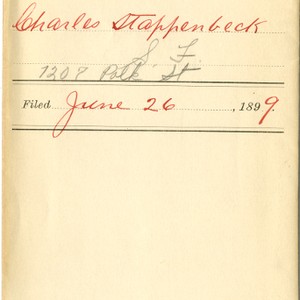 Charles Stappenbeck
S. F.
1207 Polk St
Filed June 26, 1899.